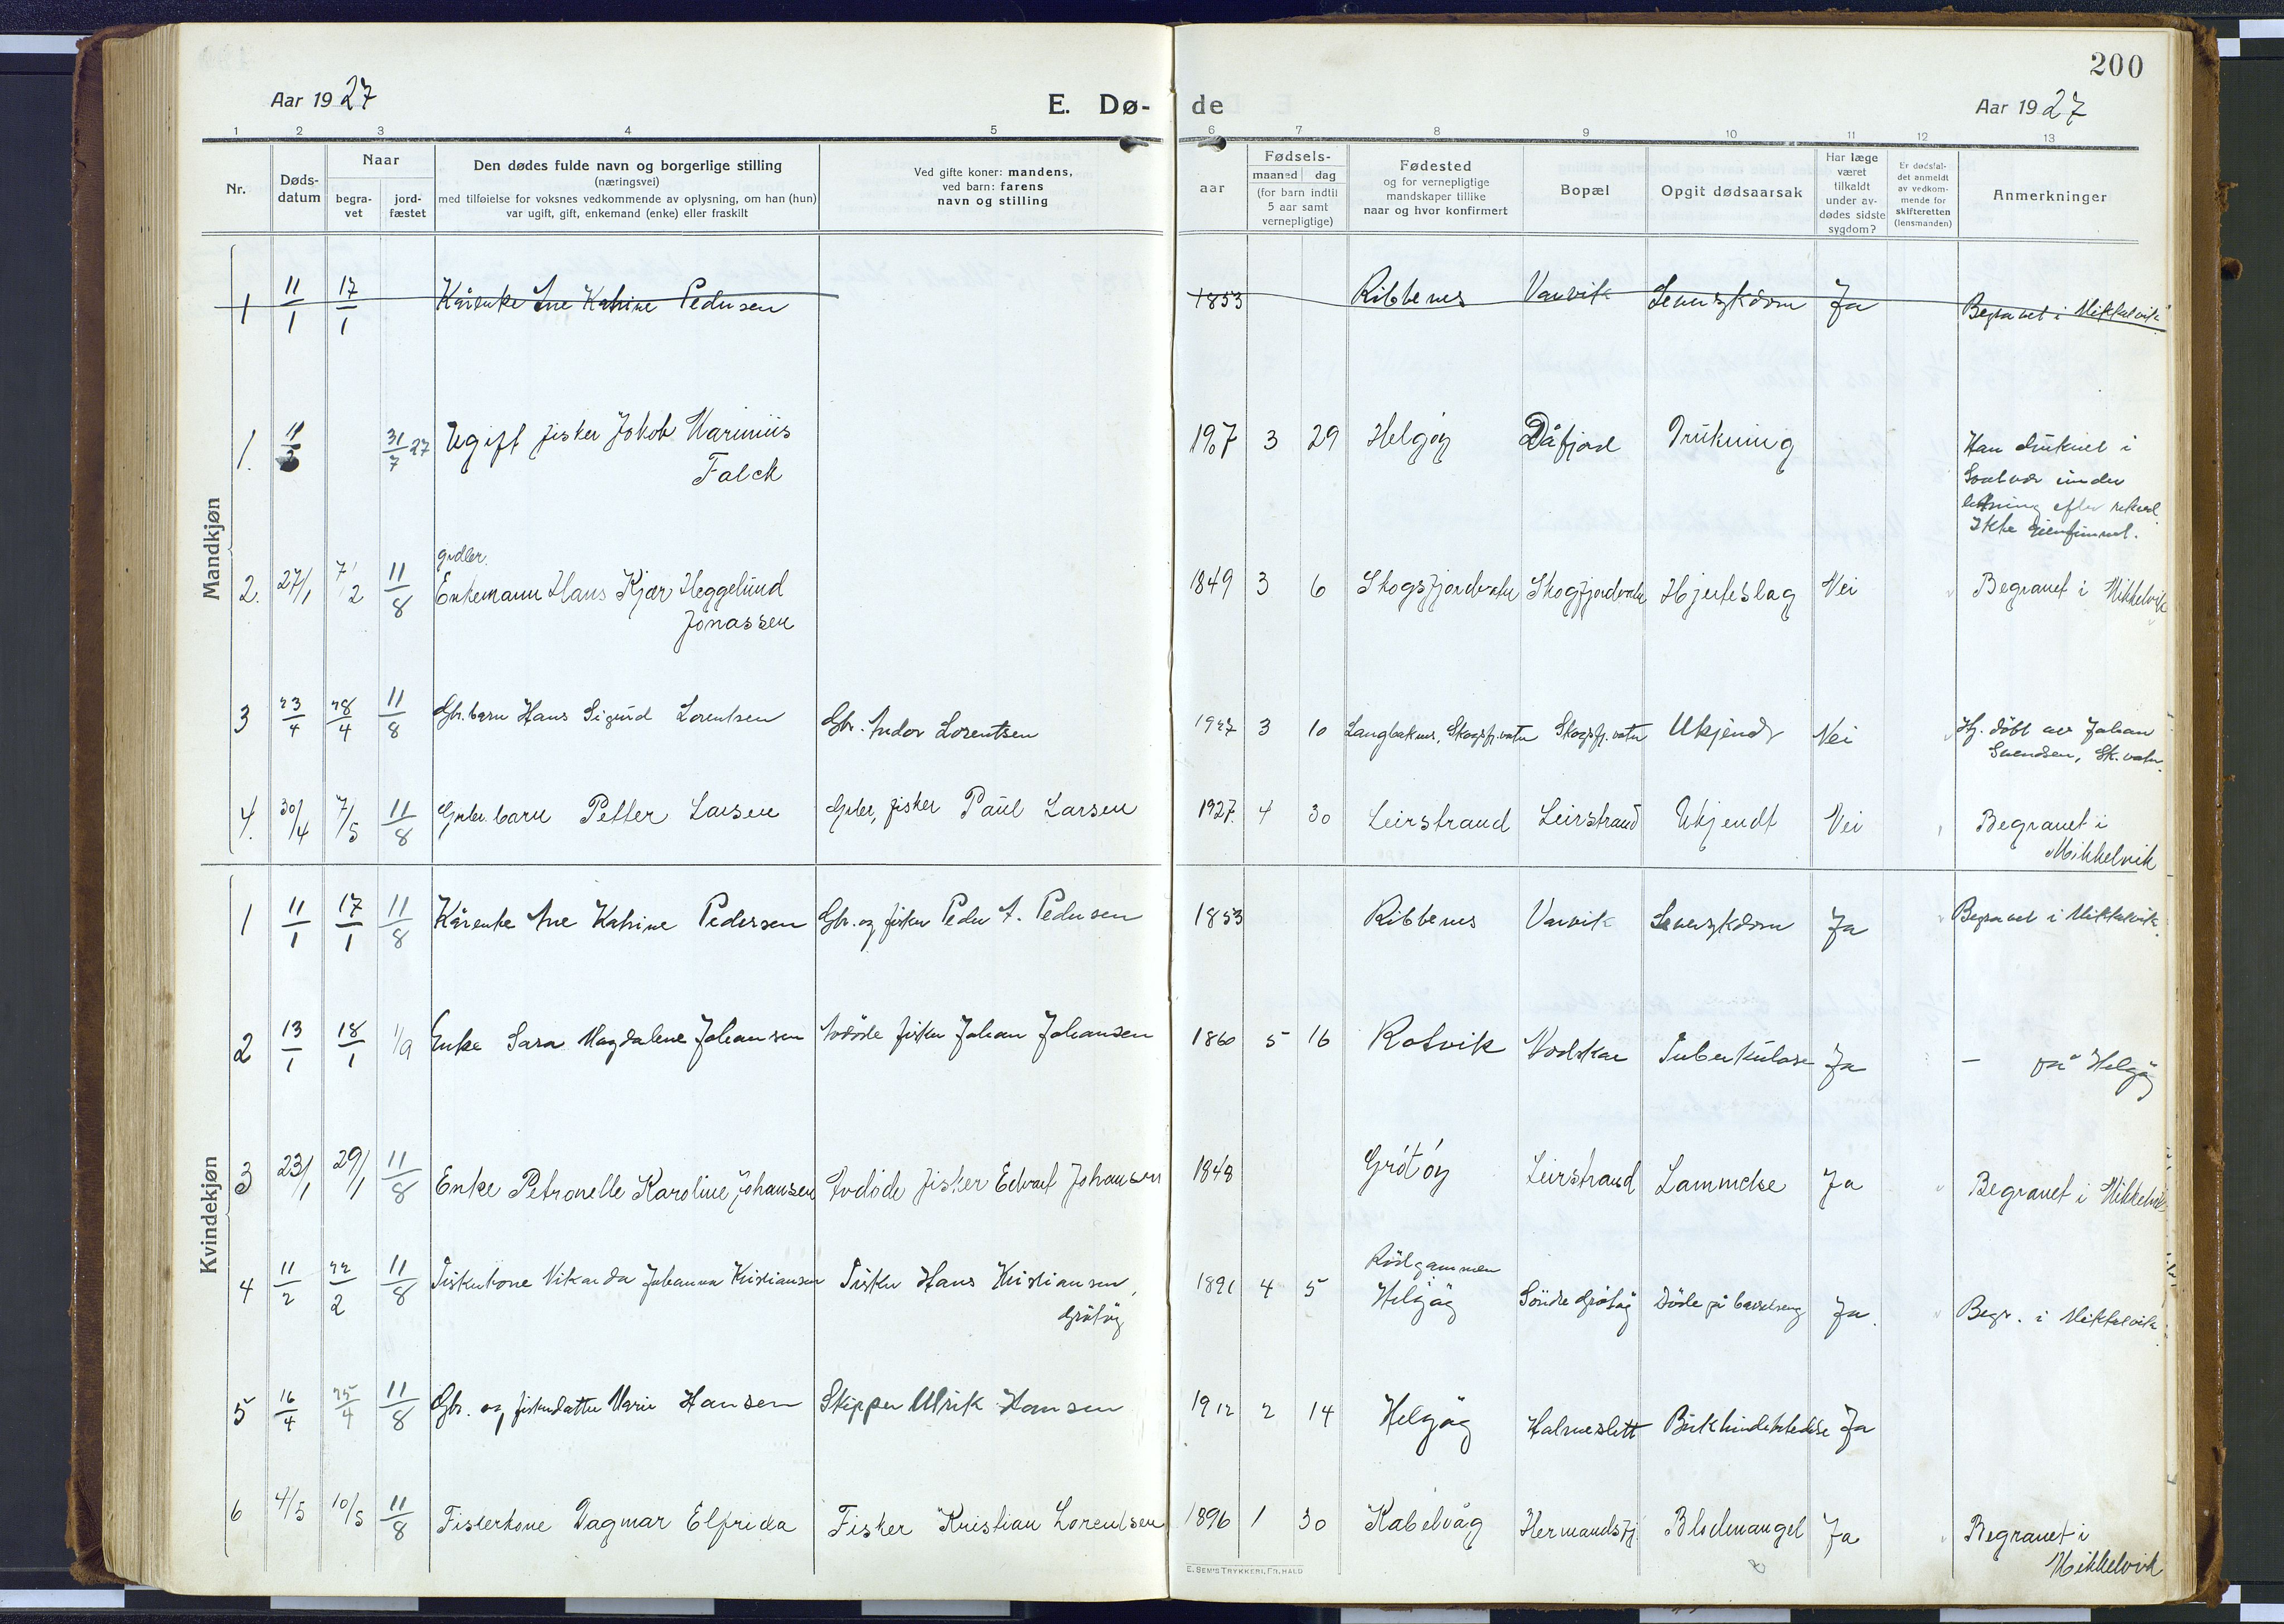 200
Aar 1927
E. Dø-
de
Aar 1927
1 2 3 4 5 6 7 8 9 10 11 12 13
Nr.
Døds-
datum
Naar
begra-
vet
jord-
fæstet
Den dødes fulde navn og borgerlige stilling
(næringsvei)
med tilføielse for voksnes vedkommende av oplysning, om han (hun)
var ugift, gift, enkemand (enke) eller fraskilt
Ved gifte koner: mandens,
ved barn: farens
navn og stilling
aar
Fødsels-
maaned dag
(for barn indtil
5 aar samt
vernepligtige)
Fødested
og for vernepligtige
mandskaper tillike
naar og hvor konfirmert
Bopæl
Opgit dødsaarsak
Har læge
været
tilkaldt
under av-
dødes sidste
sygdom?
Er dødsfal-
det anmeldt
av vedkom-
mende for
skifteretten
(lensmanden)
Anmerkninger
Mandkjøn
1 11/1 17/1 Kårenke Ane Katrine Pedersen 1853 Ribbenes Vanvik Leversykdom Ja Begravet i Mikkelvik
1. 11/3 31/7 27 Ugift fisker Jokob Marinius 1907 3 29 Helgøy Dåfjord Drukning Han druknet i
Falck
under
letning efter rekved.
Ikke gjenfunnet.
grdbr.
2. 27/1 7/2 11/8 Enkemann Hans Kjær Heggelund 1849 3 6 Skogsfjordvatn Skogfjordvatn Hjerteslag Nei Begravet i Mikkelvik
Jonassen
3 23/4 28/4 11/8 Gbr. barn Hans Sigurd Lorentsen Gbr. Andor Lorentsen 1927 3 10 Langbakken, Skogsfj.vatn Skogsfj.vatn Ukjendt Nei Hj. døbt av Johan
Svendsen, Sk.vatn.
4. 30/4 7/5 11/8 Grbr. barn Petter Larsen Grbr, fisker Paul Larsen 1927. 4 30 Leirstrand Leirstrand Ukjendt Nei Begravet i
Mikkelvik
Kvindekjøn
1 11/1 17/1 11/8 Kårenke Ane Katrine Pedersen Gbr. og fisker Peder A. Pedersen 1853 Ribbenes Vanvik Leversykdom Ja Begravet i Mikkelvik.
2 13/1 18/1 1/9 Enke Sara Magdalene Johansen Avdøde fisker Johan Johansen 1860 5 16 Rotvik Nordskar Tuberkulose Ja — på Helgøy
3 23/1 29/1 11/8 Enke Petronelle Karoline Johansen Avdøde fisker Edvart Johansen 1848 Grøtøy Leirstrand Lammelse Ja Begravet i Mikkelvik
Rødgammen
4 11/2 22/2 11/8 Fiskerkone Vikanda Johanna Kristiansen Fisker Hans Kristiansen, 1891 4 5 Helgøy Søndre Grøtøy Døde på barselseng Ja. Begr. i Mikkelvik.
Grøtøy
5 16/4 25/4 11/8 Gbr. og fiskerdatter Marie Hansen Skipper Ulrik Hansen 1912 2 14 Helgøy Halmeslett Bukhindebetedelse Ja
6 4/5 10/5 11/8 Fiskerkone Dagmar Elfrida Fisker Kristian Lorentsen 1896 1 30 Kabelvåg Hermandsfj Blodmangel Ja Begravet i
Mikkelvik
E. SEM'S TRYKKERI, FR. HALD